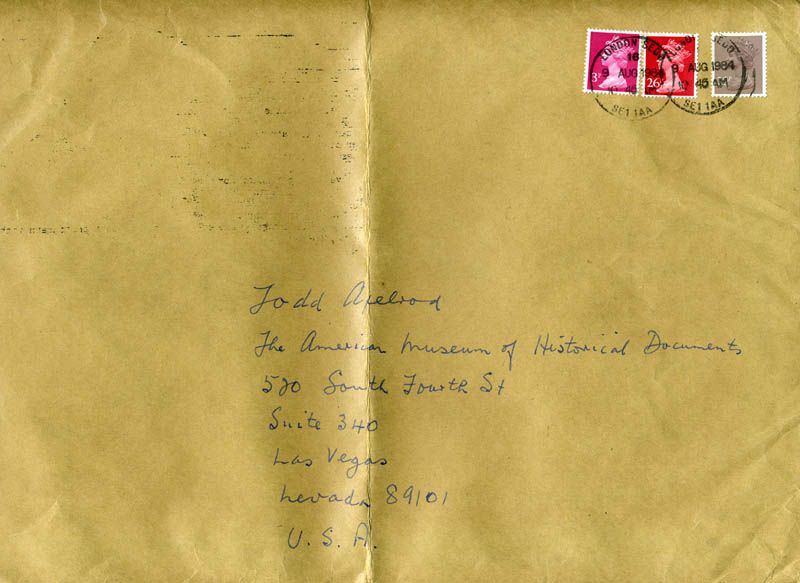 LONDON SE1
16
9 AUG 1984
SE1 1AA
9 AUG 1984
10 45 AM
SE1 1AA
3P
26P
Todd Axelrod
The American Museum of Historical Documents
520 South Fourth St
Suite 340
Las Vegas
Nevada 89101
U. S. A.